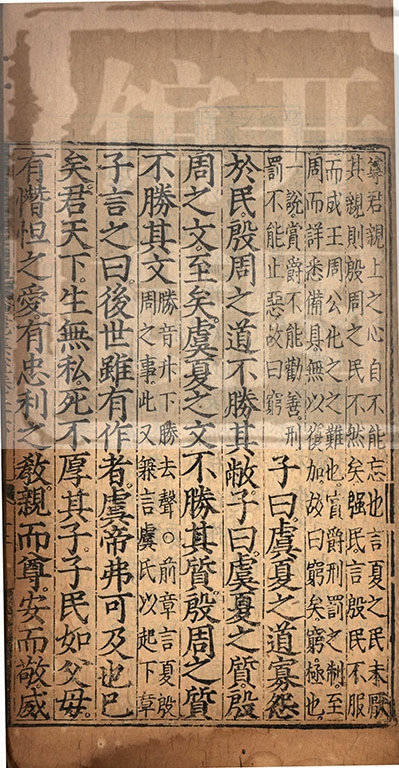 尊君親上之心自不能忘也言夏之民未厭
其親則殷周之民不然矣强民言殷民不服
而成王周公化之之難也賞爵刑罰之制至
周而詳悉備具無以復加故曰窮矣窮極也
一說賞爵不能勸善刑
罰不能止惡故曰窮
子曰虞夏之道寡怨
於民殷周之道不勝其敝子曰虞夏之質殷
周之文至矣虞夏之文不勝其質殷周之質
不勝其文
勝音升下勝去聲○前章言夏殷
周之事此又兼言虞氏以起下章
子言之曰後世雖有作者虞帝弗可及也已
矣君天下生無私死不厚其子子民如父母
有憯怛之愛有忠利之教親而尊安而敬威